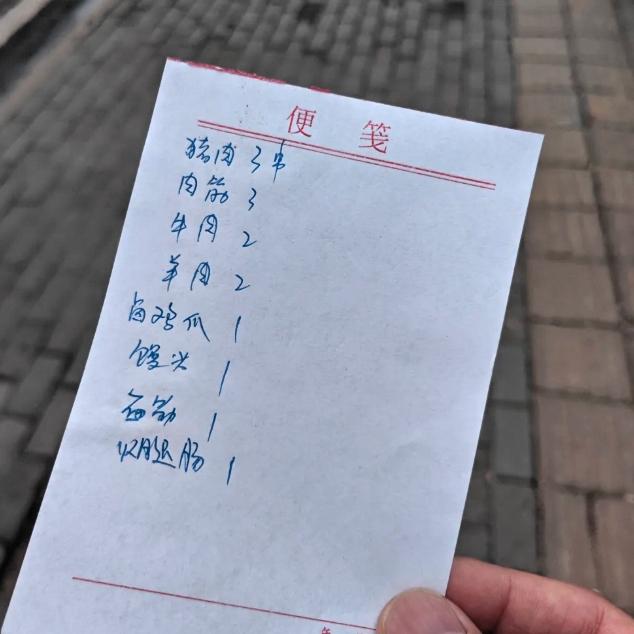 便 笺
猪肉 3串
肉筋 3
牛肉 2
羊肉 2
卤鸡爪 1
馒头 1
面筋 1
火腿肠 1